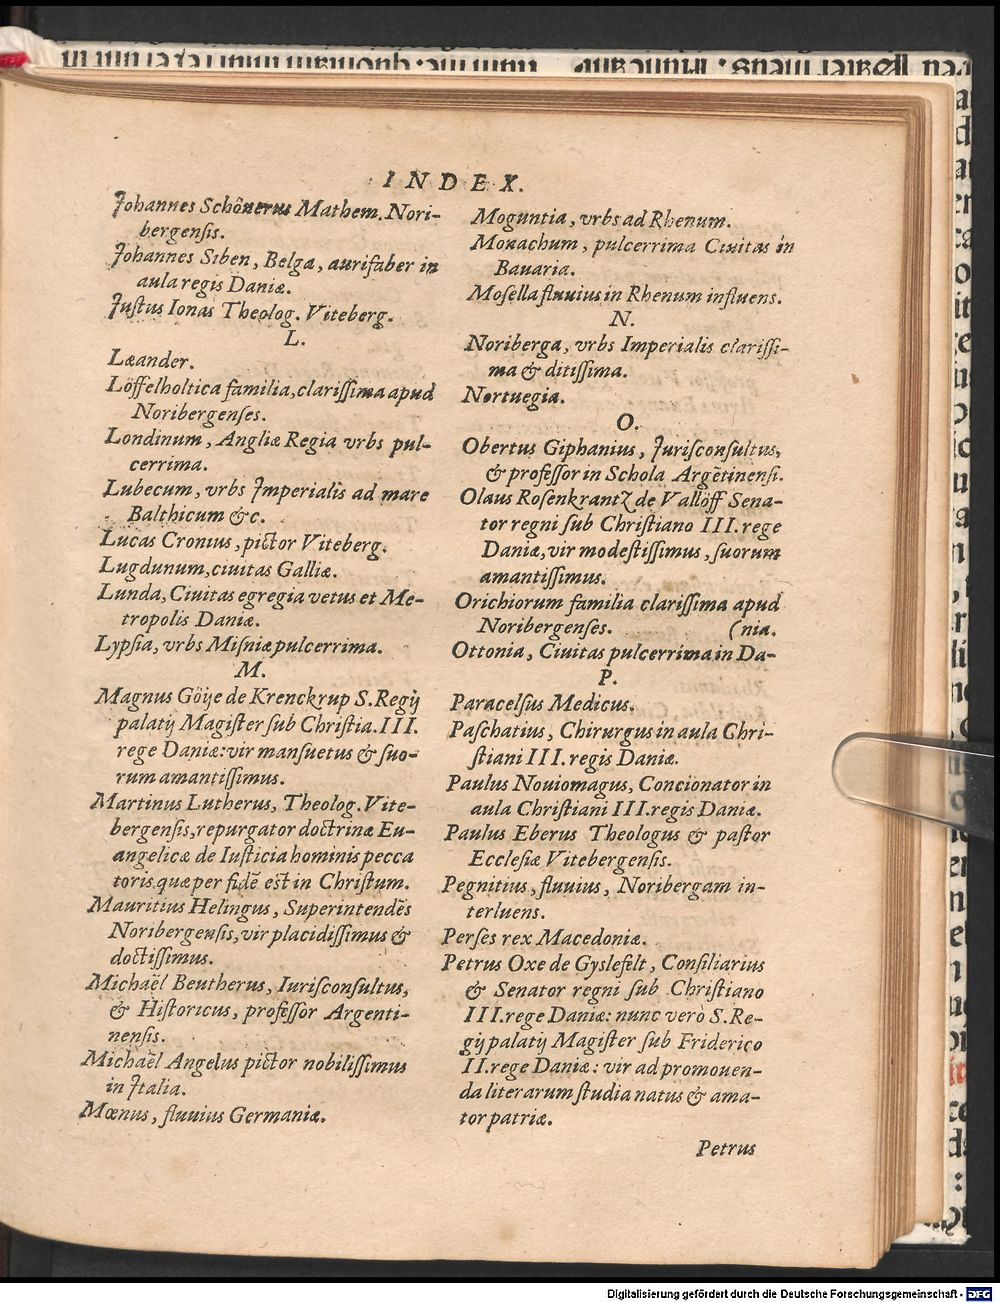 INDEX.
Johannes Schônerus Mathem. Nori-
bergensis.
Johannes Siben, Belga, aurifaber in
aula regis Daniæ.
Justus Ionas Theolog. Viteberg.
L.
Læander.
Löffelholtica familia, clarissima apud
Noribergenses.
Londinum, Angliæ Regia vrbs pul-
cerrima.
Lubecum, vrbs Imperialis ad mare
Balthicum &c.
Lucas Cronius, pictor Viteberg.
Lugdunum, ciuitas Galliæ.
Lunda, Ciuitas egregia vetus et Me-
tropolis Daniæ.
Lypsia, vrbs Misniæ pulcerrima.
M.
Magnus Göije de Krenckrup S. Regij
palatij Magister sub Christia. III.
rege Daniæ: vir mansuetus & suo-
rum amantissimus.
Martinus Lutherus, Theolog. Vite-
bergensis, repurgator doctrinæ Eu-
angelicæ de Iusticia hominis pecca
toris, quæ per fidē est in Christum.
Mauritius Helingus, Superintendēs
Noribergensis, vir placidissimus &
doctissimus.
Michaël Beutherus, Iurisconsultus,
& Historicus, professor Argenti-
nensis.
Michaël Angelus pictor nobilissimus
in Italia.
Mœnus, fluuius Germaniæ.
Moguntia, vrbs ad Rhenum.
Monachum, pulcerrima Ciuitas in
Bauaria.
Mosella fluuius in Rhenum influens.
N.
Noriberga, vrbs Imperialis clarissi-
ma & ditissima.
Nortuegia.
O.
Obertus Giphanius, Jurisconsultus,
& professor in Schola Argētinensi.
Olaus Rosenkrantz de Vallöff Sena-
tor regni sub Christiano III. rege
Daniæ, vir modestissimus, suorum
amantissimus.
Orichiorum familia clarissima apud
Noribergenses. (nia.
Ottonia, Ciuitas pulcerrima in Da-
P.
Paracelsus Medicus.
Paschatius, Chirurgus in aula Chri-
stiani III. regis Daniæ.
Paulus Nouiomagus, Concionator in
aula Christiani III. regis Daniæ.
Paulus Eberus Theologus & pastor
Ecclesiæ Vitebergensis.
Pegnitius, fluuius, Noribergam in-
terluens.
Perses rex Macedoniæ.
Petrus Oxe de Gyslefelt, Consiliarius
& Senator regni sub Christiano
III. rege Daniæ: nunc verò S. Re-
gij palatij Magister sub Friderico
II. rege Daniæ: vir ad promouen-
da literarum studia natus & ama-
tor patriæ.
Petrus
Digitalisierung gefördert durch die Deutsche Forschungsgemeinschaft - DFG